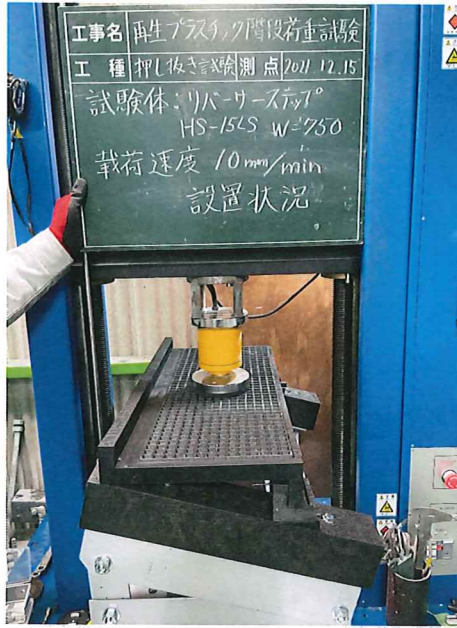 工事名 再生プラスチック階段荷重試験
工種 押し抜き試験 測点 2021.12.15
試験体：リバーサーステップ
HS-15LS W=750
載荷速度 10mm/min
設置状況